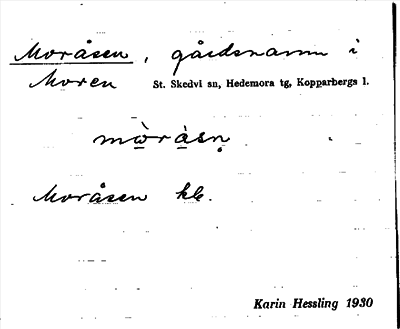 Moråsen, gårdsnamn i
Moren St. Skedvi sn, Hedemora tg, Kopparbergs l.
mò̲rà̲sṇ
Moråsen kb.
Karin Hessling 1930